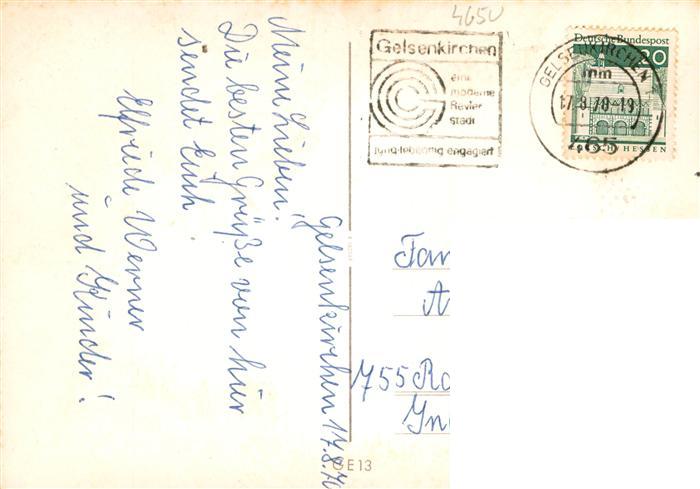 4650
Gelsenkirchen
eine
moderne
Revier
stadt
jung-lebendig engagiert
Deutsche Bundespost
20
GELSENKIRCHEN 1
mm
17.8.70-19
465
LORSCH/HESSEN
Gelsenkirchen, 17.8.70
Meine Lieben!
Die besten Grüße von hier
sendet Euch
Elfriede Werner
und Kinder!
Fam
A
755 Ra
In
GE13